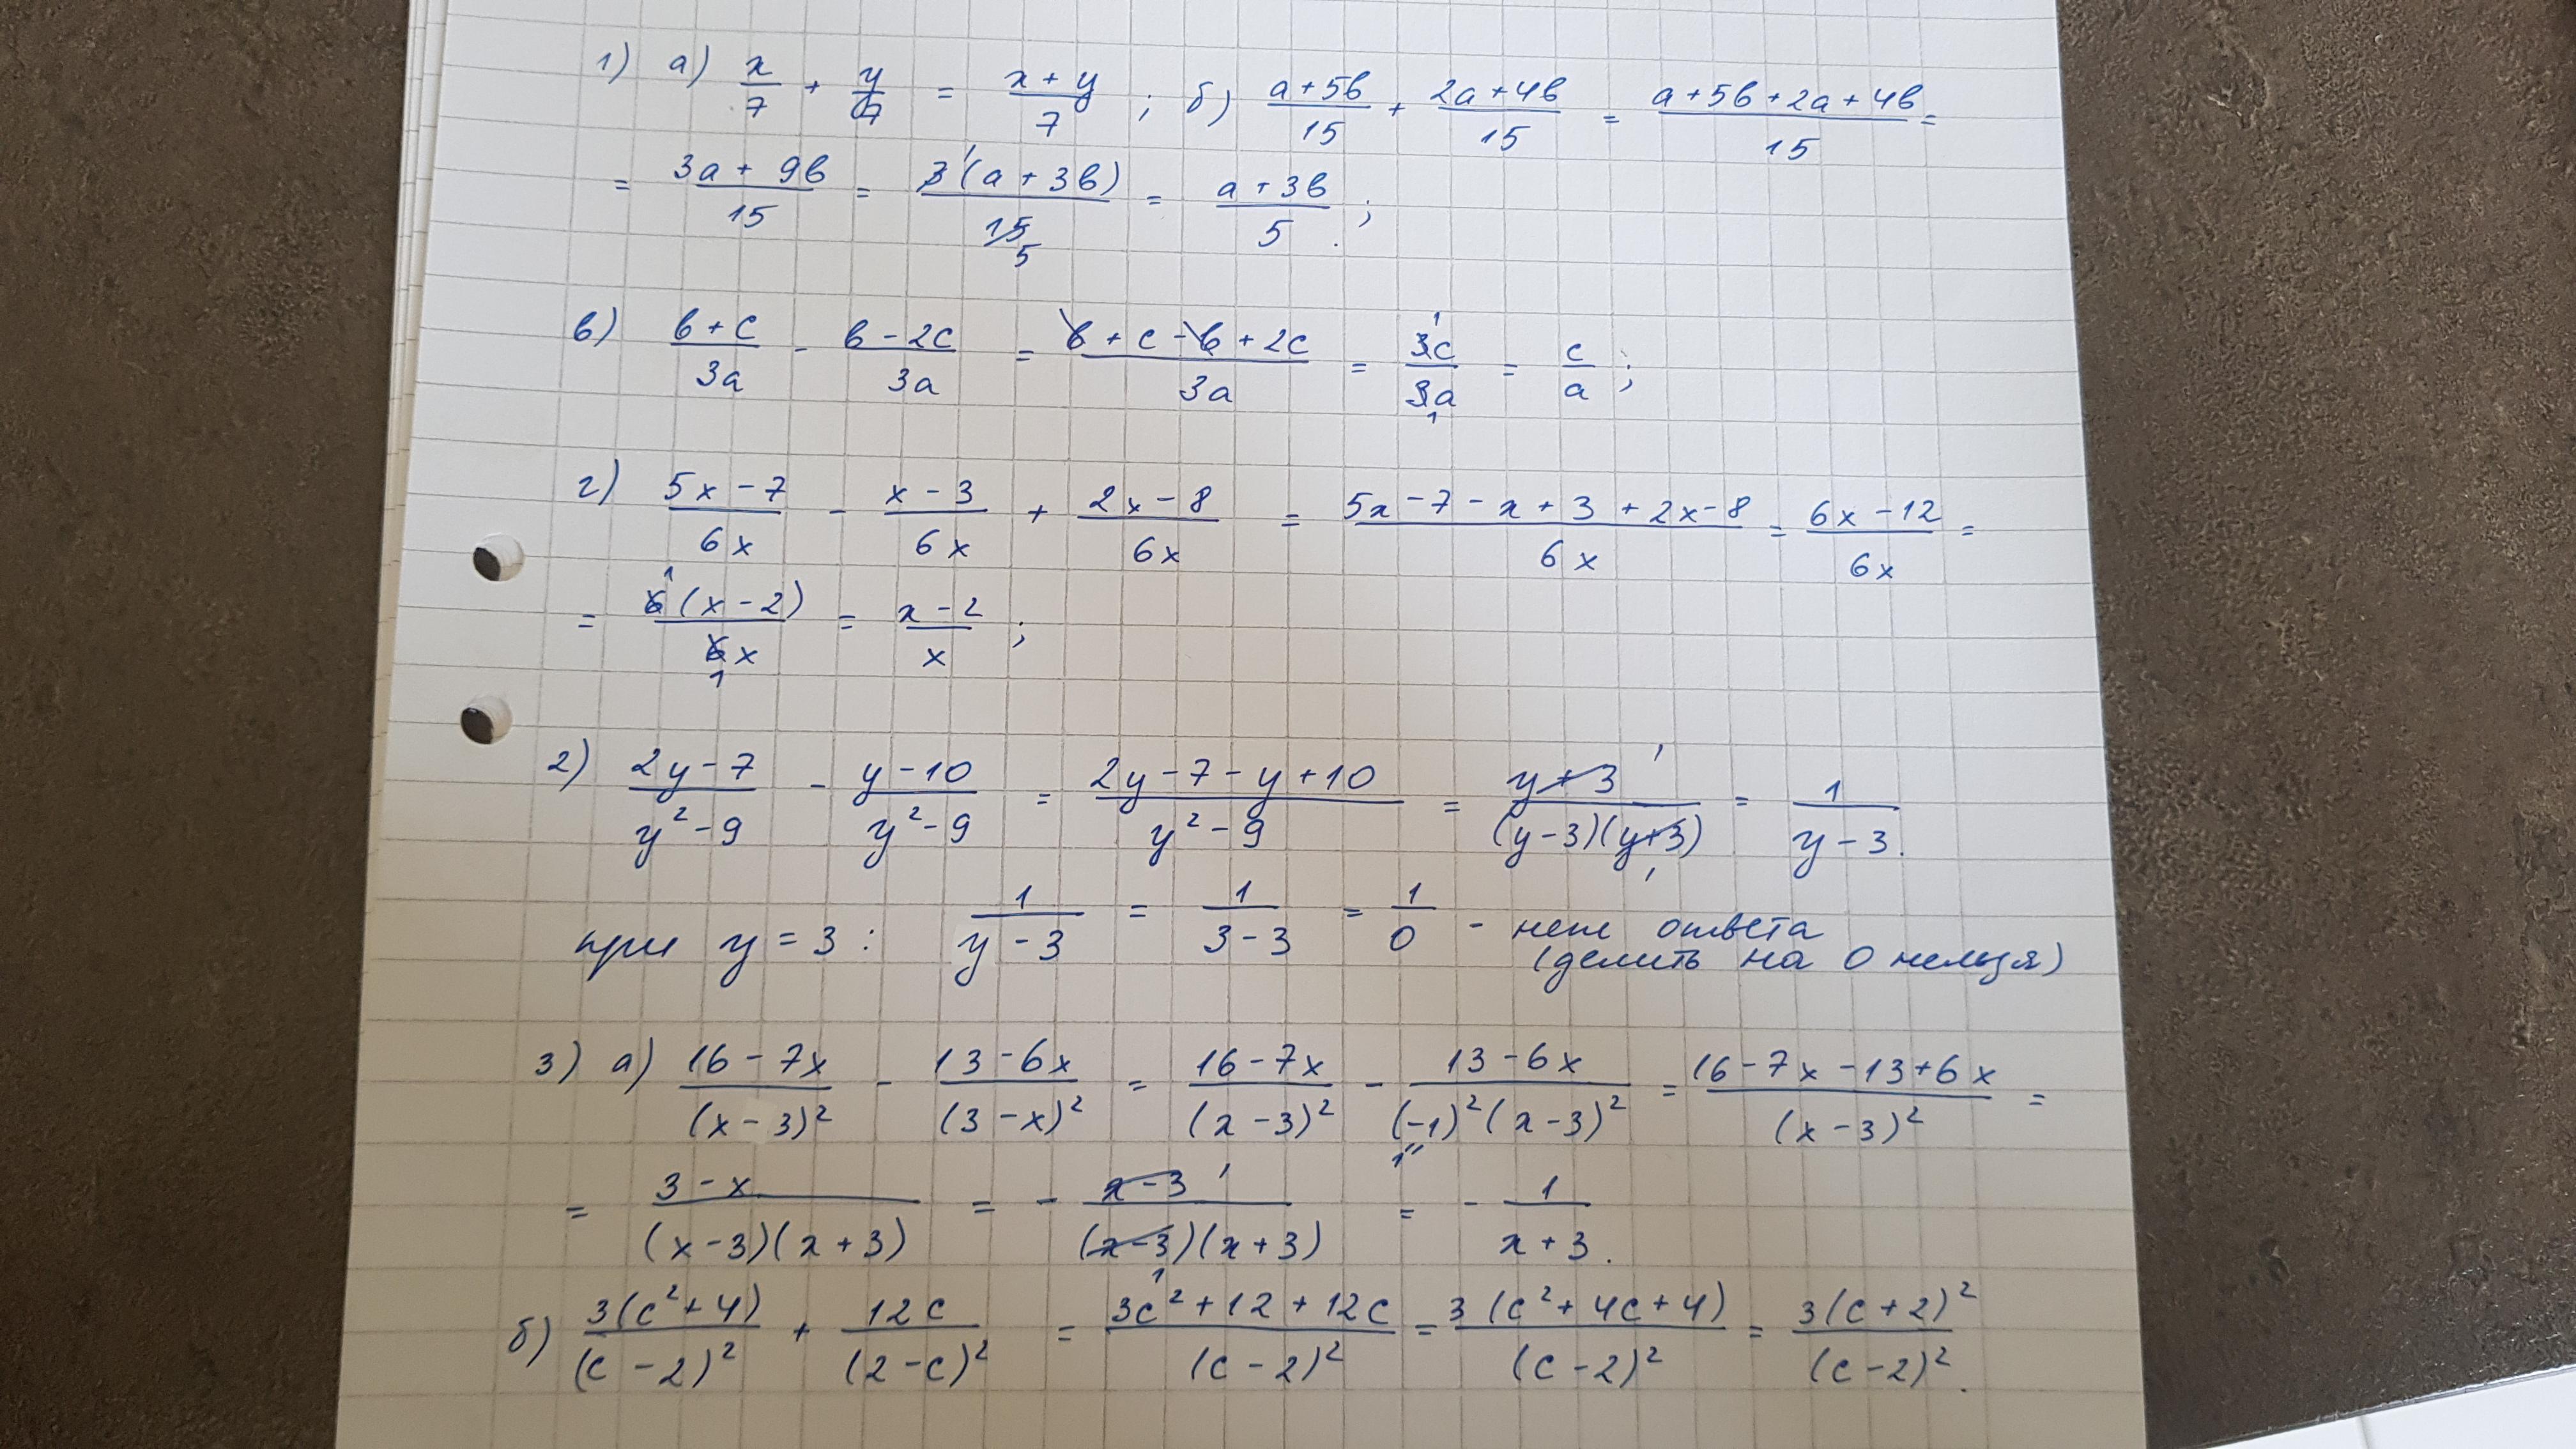 1) а) x/7 + y/7 = (x + y)/7 ; б) (a + 5b)/15 + (2a + 4b)/15 = (a + 5b + 2a + 4b)/15 =
= (3a + 9b)/15 = 3(a + 3b)/15 = (a + 3b)/5 ;
в) (b + c)/3a - (b - 2c)/3a = (b + c - b + 2c)/3a = 3c/3a = c/a ;
г) (5x - 7)/6x - (x - 3)/6x + (2x - 8)/6x = (5x - 7 - x + 3 + 2x - 8)/6x = (6x - 12)/6x =
= 6(x - 2)/6x = (x - 2)/x ;
2) (2y - 7)/(y² - 9) - (y - 10)/(y² - 9) = (2y - 7 - y + 10)/(y² - 9) = (y + 3)/((y - 3)(y + 3)) = 1/(y - 3).
при y = 3 : 1/(y - 3) = 1/(3 - 3) = 1/0 - нет ответа
(делить на 0 нельзя)
3) а) (16 - 7x)/(x - 3)² - (13 - 6x)/(3 - x)² = (16 - 7x)/(x - 3)² - (13 - 6x)/((-1)²(x - 3)²) = (16 - 7x - 13 + 6x)/(x - 3)² =
= (3 - x)/((x - 3)(x + 3)) = - (x - 3)/((x - 3)(x + 3)) = - 1/(x + 3).
б) 3(c² + 4)/(c - 2)² + 12c/(2 - c)² = (3c² + 12 + 12c)/(c - 2)² = 3(c² + 4c + 4)/(c - 2)² = 3(c + 2)²/(c - 2)².